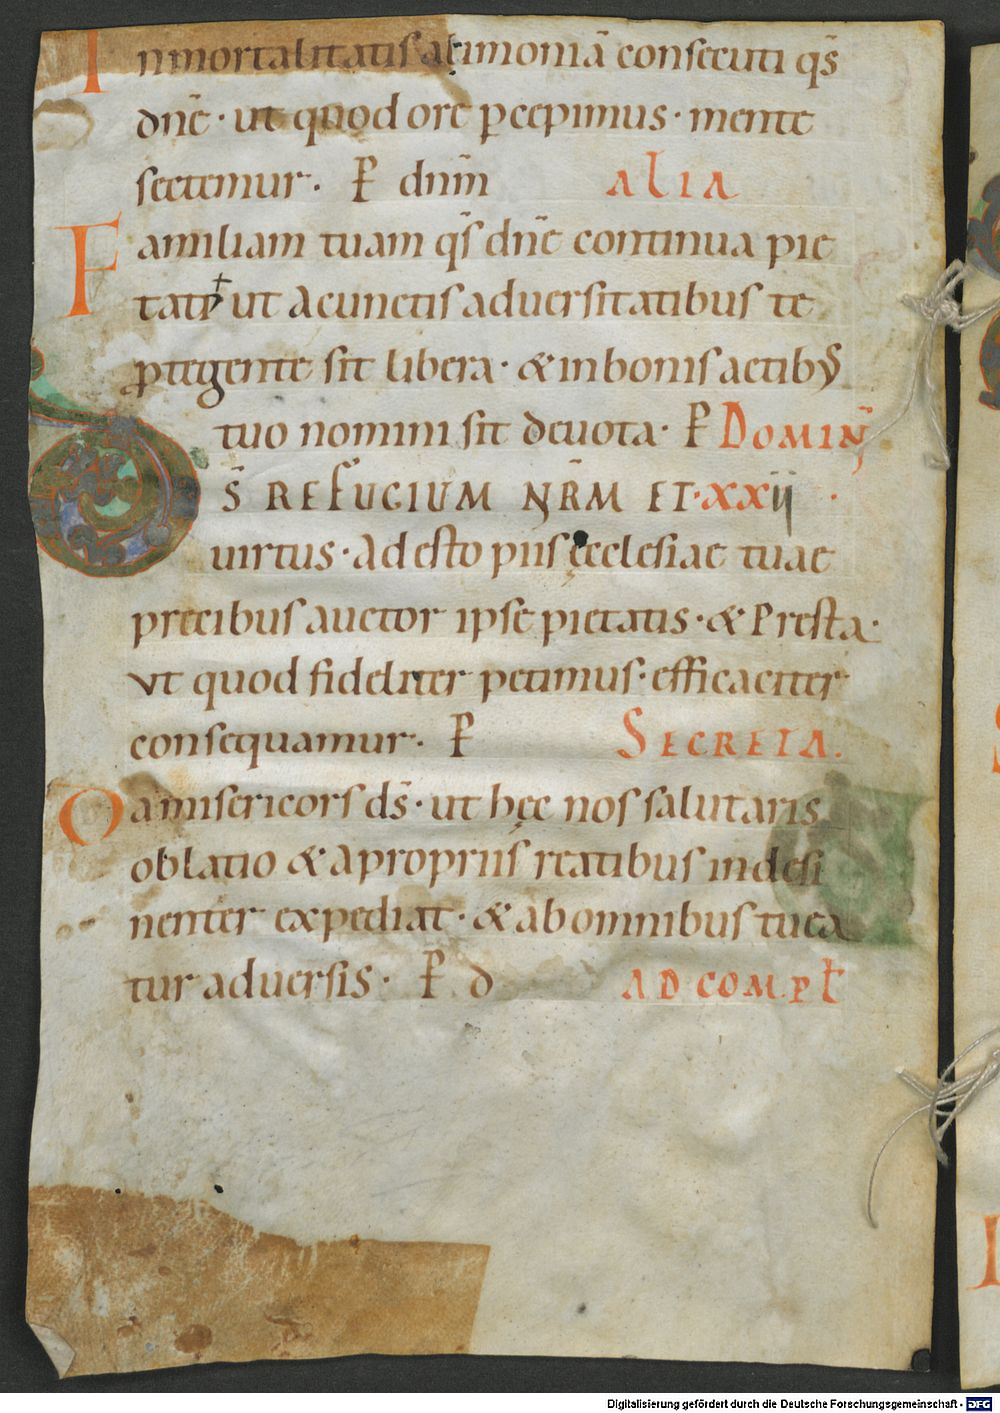 Inmortalitatis alimoniā consecuti q̄s
dn̄e · ut quod ore ꝑcepimus · mente
sectemur . P dn̄m ALIA
Familiam tuam q̄s dn̄e continua pie
tate ut a cunctis aduersitatibus te
ꝓtegente sit libera · & in bonis actibus
tuo nomini sit deuota · P DOMIN̄
D̄S REFUGIUM NR̄M ET · XXII ·
uirtus · Adesto piis ęcclesiae tuae
precibus auctor ipse pietatis · & Presta ·
ut quod fideliter petimus · efficaciter
consequamur · P SECRETA .
Da misericors ds̄ · ut hęc nos salutaris
oblatio & a propriis reatibus indesi
nenter expediat · & ab omnibus tuea
tur aduersis · P d AD COMPL
Digitalisierung gefördert durch die Deutsche Forschungsgemeinschaft - DFG